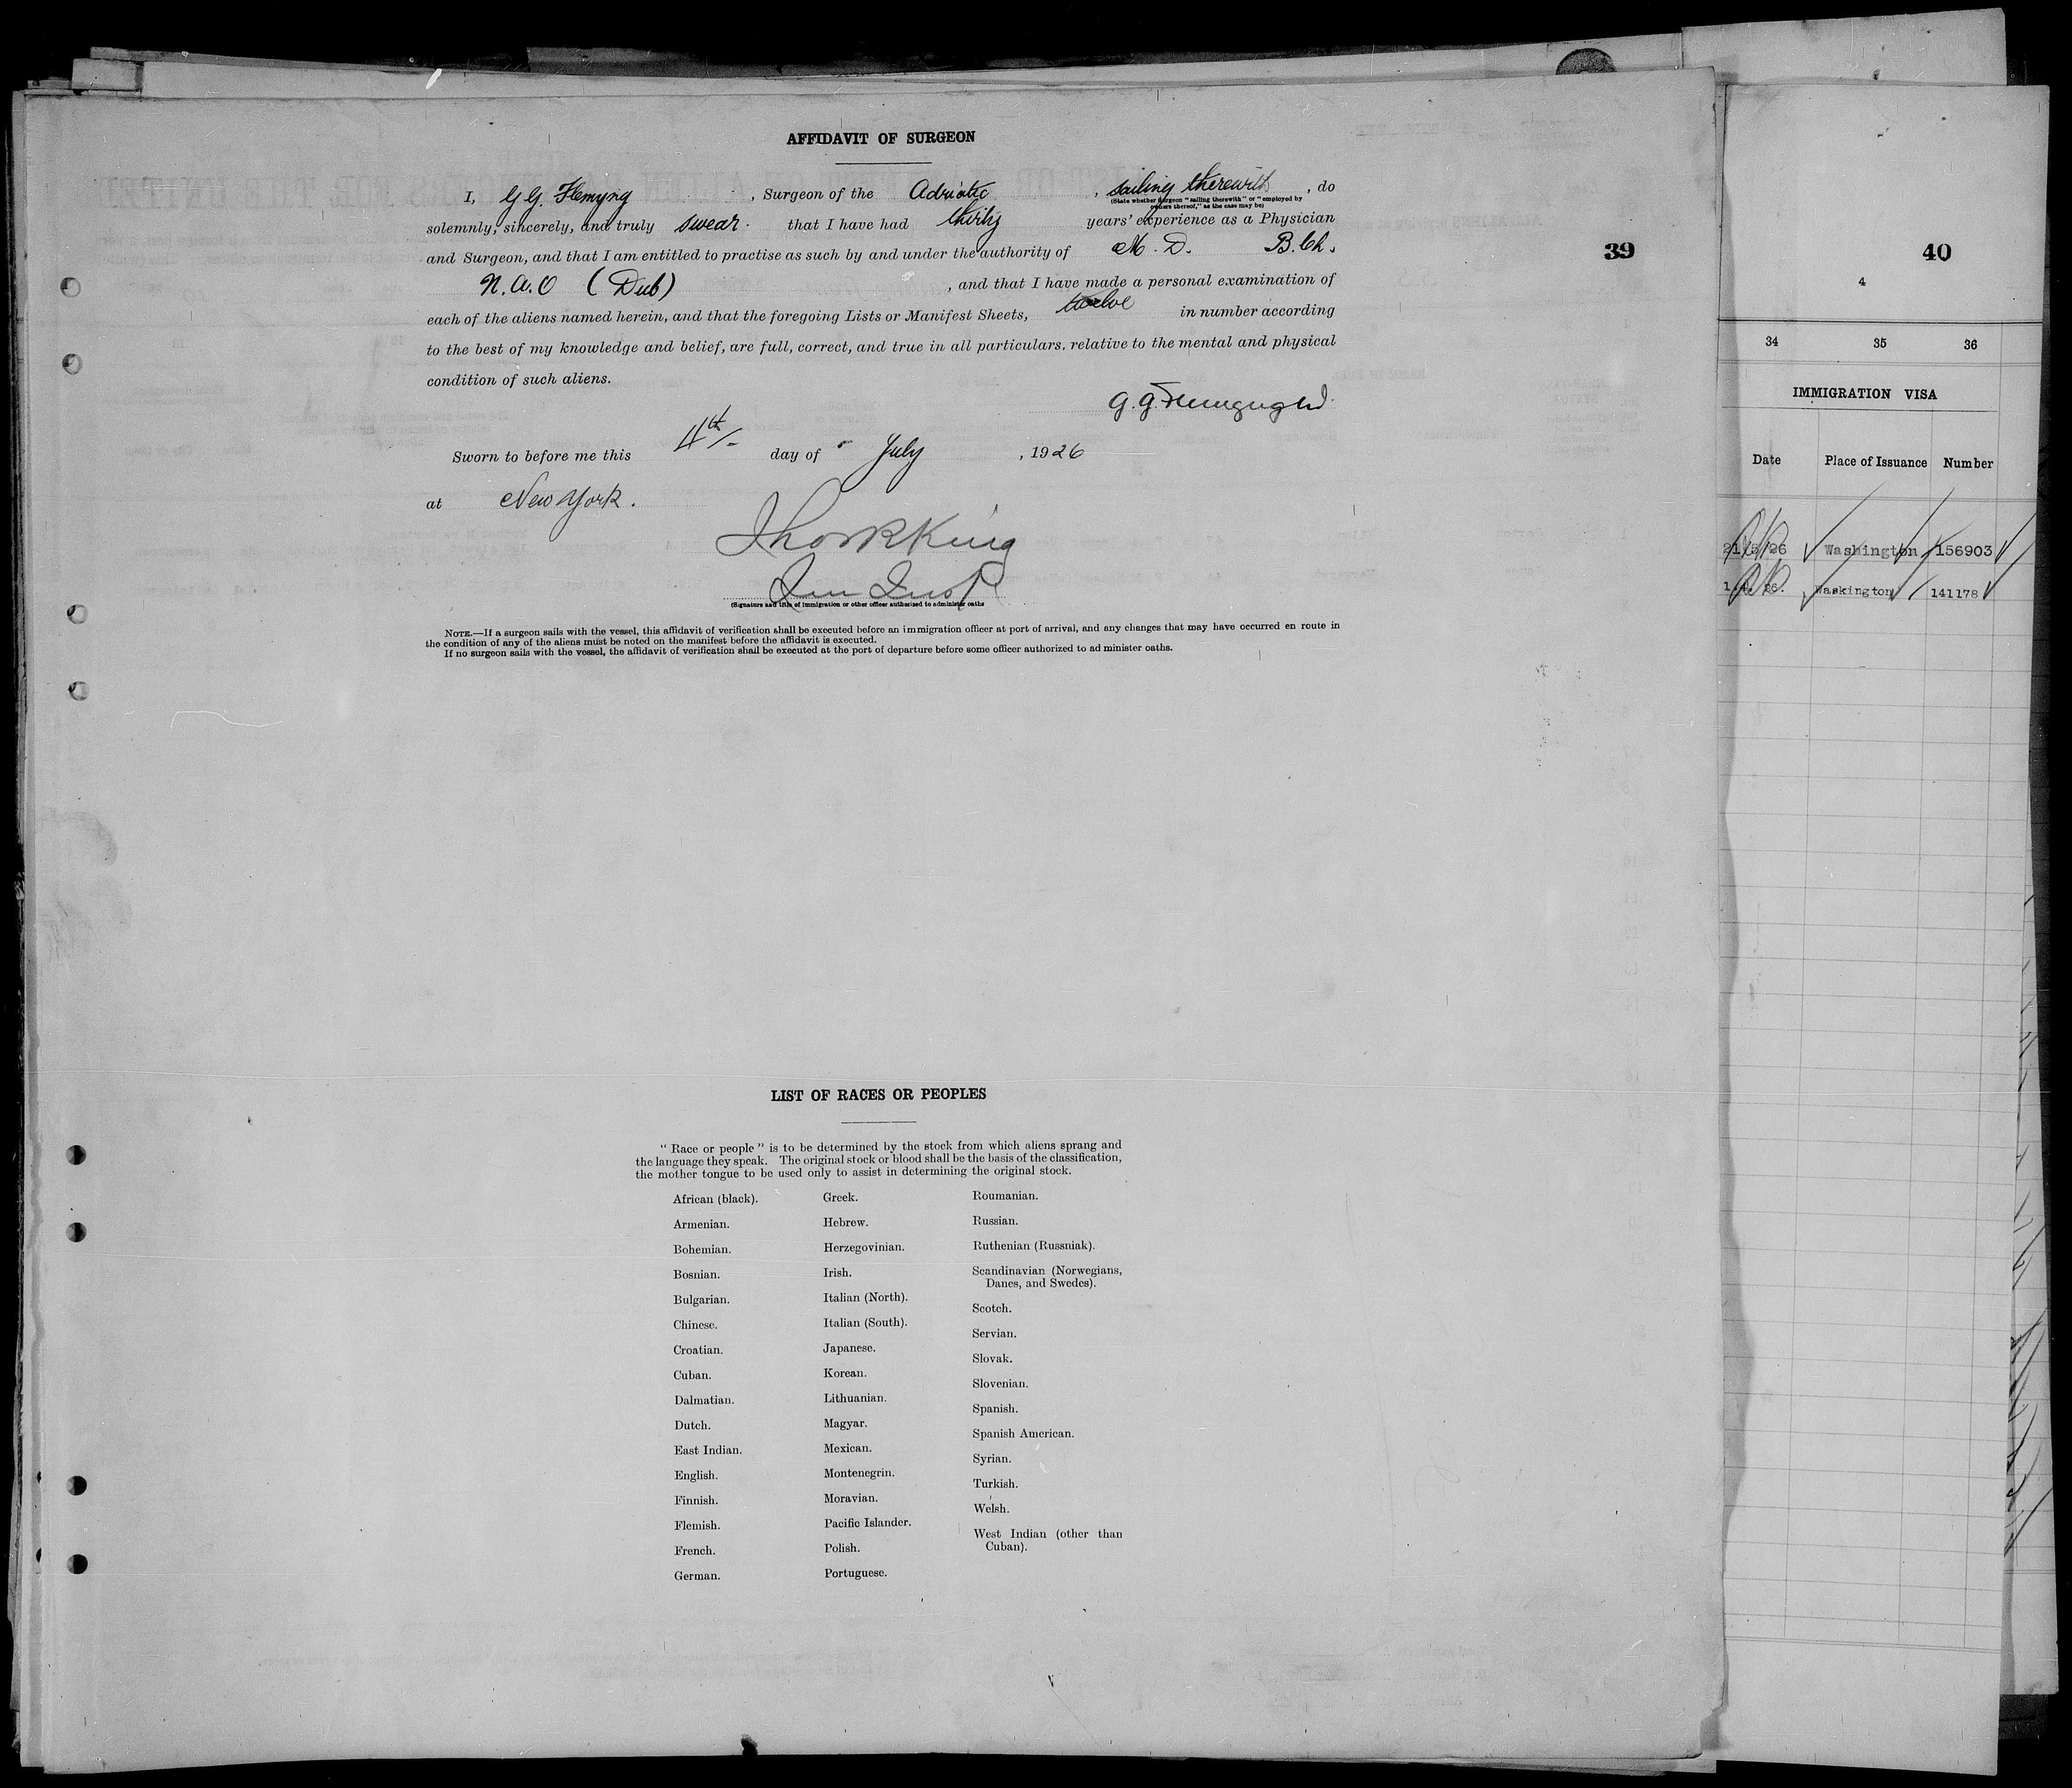 AFFIDAVIT OF SURGEON
I, G G. Flemyng , Surgeon of the Adriatic , sailing therewith , do
(State whether surgeon "sailing therewith" or "employed by
owners thereof," as the case may be)
solemnly, sincerely, and truly swear. that I have had thirty years' experience as a Physician
and Surgeon, and that I am entitled to practise as such by and under the authority of M. D. B. Ch.
(Dub) , and that I have made a personal examination of
each of the aliens named herein, and that the foregoing Lists or Manifest Sheets, twelve in number according
to the best of my knowledge and belief, are full, correct, and true in all particulars. relative to the mental and physical
condition of such aliens.
Sworn to before me this day of July , 1926
at New York.
(Signature and title of immigration or other officer authorized to administer oaths
NOTE.—If a surgeon sails with the vessel, this affidavit of verification shall be executed before an immigration officer at port of arrival, and any changes that may have occurred en route in
the condition of any of the aliens must be noted on the manifest before the affidavit is executed.
If no surgeon sails with the vessel, the affidavit of verification shall be executed at the port of departure before some officer authorized to ad minister oaths.
39
LIST OF RACES OR PEOPLES
" Race or people " is to be determined by the stock from which aliens sprang and
the language they speak. The original stock or blood shall be the basis of the classification,
the mother tongue to be used only to assist in determining the original stock.
African (black).
Armenian.
Bohemian.
Bosnian.
Bulgarian.
Chinese.
Croatian.
Cuban.
Dalmatian.
Dutch.
East Indian.
English.
Finnish.
Flemish.
French.
German.
Greek.
Hebrew.
Herzegovinian.
Irish.
Italian (North).
Italian (South).
Japanese.
Korean.
Lithuanian.
Magyar.
Mexican.
Montenegrin.
Moravian.
Pacific Islander.
Polish.
Portuguese.
Roumanian.
Russian.
Ruthenian (Russniak).
Scandinavian (Norwegians,
Danes, and Swedes).
Scotch.
Servian.
Slovak.
Slovenian.
Spanish.
Spanish American.
Syrian.
Turkish.
Welsh.
West Indian (other than
Cuban).
40
4
34 35 36
IMMIGRATION VISA
Date Place of Issuance Number
Washington 156903
Waskington 141178